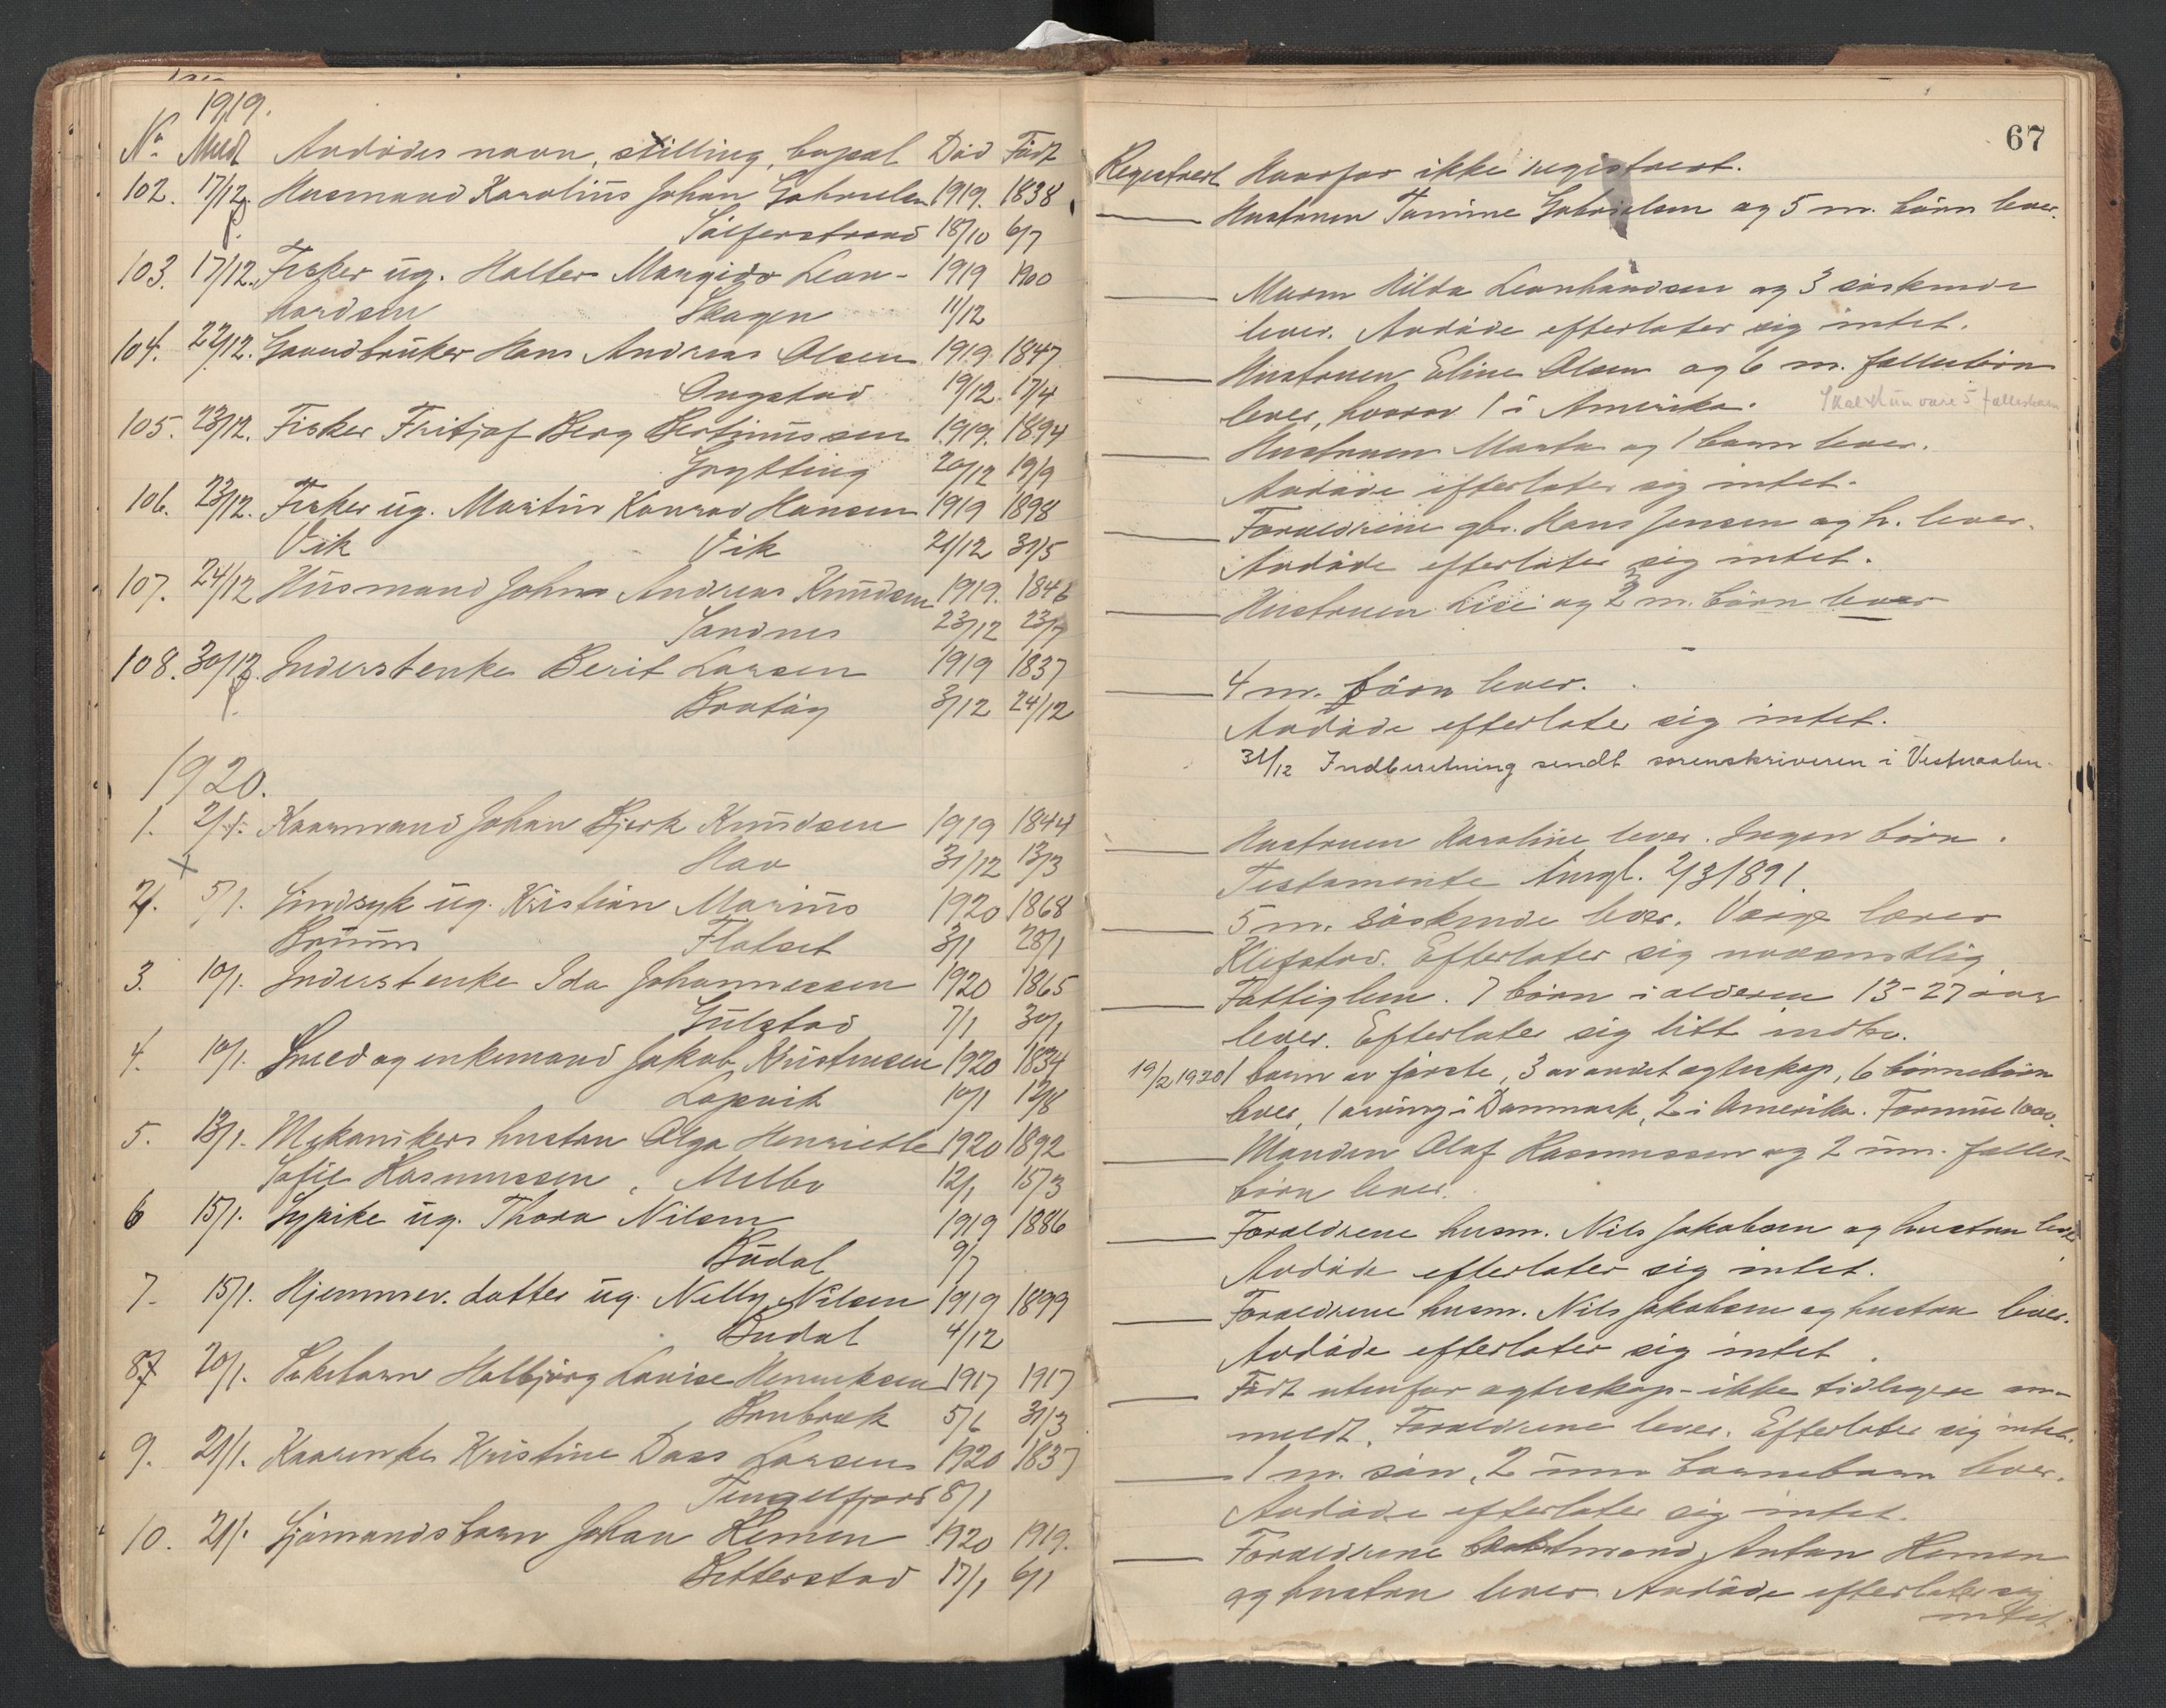 1919.
No Meldt Avdødes navn, stilling, bopæl Död Født
102. 17/12. Husmand Karolius Johan Gabrielsen 1919. 1838
Sälferstrand 18/10 6/7
103. 17/12. Fisker ug. Halter Margido Leon- 1919 1900
hardsen Skagen 11/12
104. 22/12. Gaardbruker Hans Andreas Olsen 1919 1847
Ongstad 19/12 17/4
105. 23/12. Fisker Fritjof Berg Bertinussen 1919. 1894
Grytting 20/12 19/9
106. 23/12. Fisker ug. Martin Konrad Hansen 1919 1898
Vik Vik 21/12 31/5
107. 24/12 Husmand Johan Andreas Knudsen 1919. 1846
Sandnes 23/12 23/7
108. 30/12. Inderstenke Berit Larsen 1919 1837
Bratåg 3/12 24/12
1920.
1. 2/1. Kaarmand Johan Bjerk Knudsen 1919 1844
Hav 31/12 13/3
2. 5/1. Sindsyk ug. Kristian Marius 1920 1868
Bruun Flatset 3/1 28/1
3. 10/1. Inderstenke Ida Johannessen 1920 1865
Gulstad 7/1 30/1
4. 10/1. Smed og enkemand Jakob Kristensen 1920 1834
Lapvik 10/1 12/8
5. 13/1. Mekanikers hustru Olga Henriette 1920 1892
Sofie Rasmussen, Melbo 12/1 15/3
6 15/1. Sypike ug. Thora Nilsen 1919 1886
Budal 9/7
7- 15/1. Hjemmev. datter ug. Nelly Nilsen 1919 1899
Budal 4/12
8 20/1. Pikebarn Halbjørg Lovise Henriksen 1917 1917
Brubræk 5/6 31/3
9. 21/1. Kaarenke Kristine Dass Larsen 1920 1837
Tengelfjord 8/1
10. 21/1. Sjömandsbarn Johan Hemen 1920 1919.
Bitterstad 17/1 6/1
67
Registrert Hvorfor ikke registrert.
Hustruen Tomine Gabrielsen og 5 m. börn lever.
Moren Hilda Leonhardsen og 3 söskende
lever. Avdöde efterlater sig intet.
Hustruen Eline Olsen og 6 m. fællesbörn
lever, hvorav 1 i Amerika. Skal kun være 5 fællesbarn
Hustruen Marta og 1 barn lever.
Avdöde efterlater sig intet.
Forældrene gbr. Hans Jensen og h. lever.
Avdöde efterlater sig intet.
Hustruen Lise og 2 m. börn lever
4 m. börn lever.
Avdöde efterlater sig intet.
31/12 Indberetning sendt sorenskriveren i Vesteraalen.
Hustruen Karoline lever. Ingen börn.
Testamente tingl. 2/3 1891.
5 m. söskende lever. Værge lærer
Klefstad. Efterlater sig uvæsentlig
Fattiglem. 7 börn i alderen 13-27 aar
lever. Efterlater sig litt indbo.
19/2 1920 1 barn av første, 3 av andet egteskap, 6 börnebörn
lever, 1 arving i Danmark, 2 i Amerika. Formue 1000.
Manden Olaf Rasmussen og 2 um. fælles-
börn lever.
Forældrene husm. Nils Jakobsen og hustru lever
Avdöde efterlater sig intet.
Forældrene husm. Nils Jakobsen og hustru lever.
Avdöde efterlater sig intet.
Født utenfor egteskap - ikke tidligere an-
meldt. Forældrene lever. Efterlater sig intet.
1 m. sön, 2 um barnebarn lever.
Avdöde efterlater sig intet.
Forældrene Anton Hemen
og hustru lever Avdöde efterlater sig
intet.